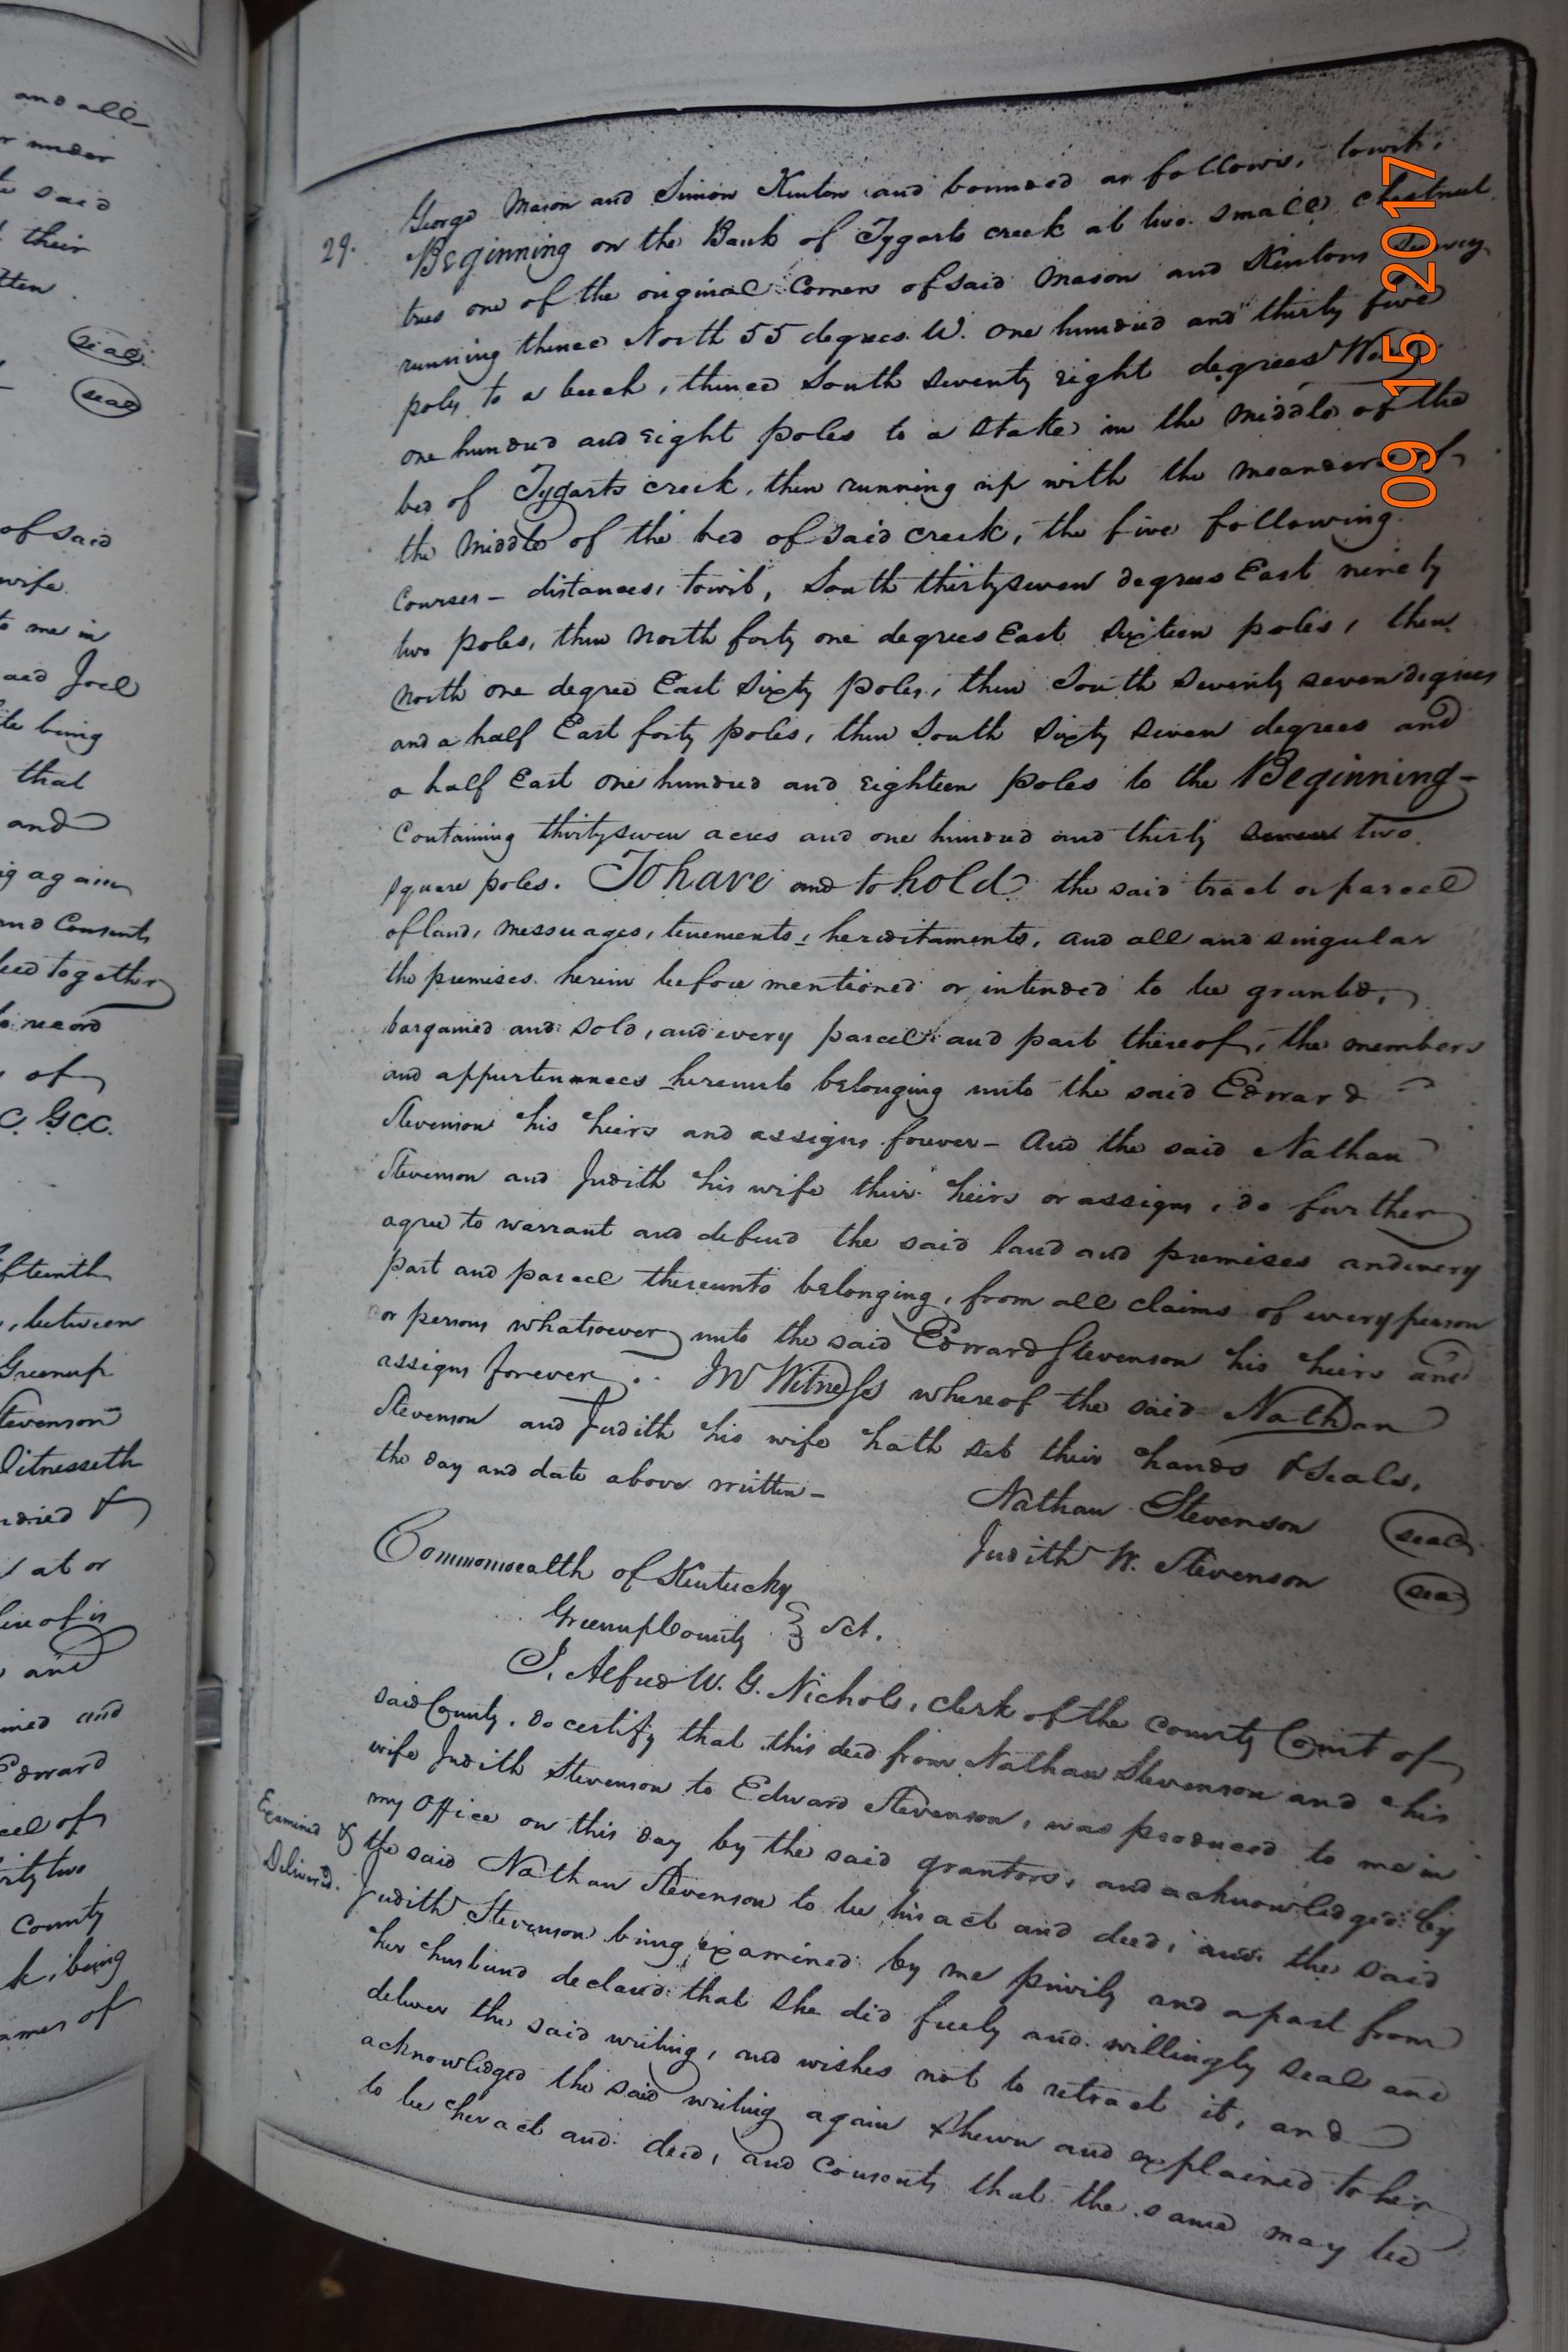 and all
under
said
their
tten.
seal
seal
of said
wife
to me in
said Joel
being
that
and
ng again
and Consents
together
to record
of
C. G.C.C.
fteenth
, between
Greenup
Stevenson
Witnesseth
&
at or
line of is
and
and
Edward
cel of
rty two
County
k, being
ames of
George Mason and Simon Kenton and bounded as follows, towit,
29. Beginning on the Bank of Tygarts creek at two small chestnut
trees one of the original Corners of said Mason and Kentons Survey
running thence North 55 degrees W. one hundred and thirty five
poles to a beech, thence South Seventy eight degrees West
one hundred and eight poles to a Stake in the middle of the
bed of Tygarts creek, then running up with the meanders of
the middle of the bed of said creek, the five following
Courses – distances, towit, South thirty seven degrees East ninety
two poles, then North forty one degrees East sixteen poles, then
North one degree East Sixty poles, then South Seventy seven degrees
and a half East forty poles, then South Sixty Seven degrees and
a half East one hundred and eighteen poles to the Beginning –
Containing thirty seven acres and one hundred and thirty seven two
square poles. To have and to hold the said tract or parcel
of land, messuages, tenements, hereditaments, and all and singular
the premises herein before mentioned or intended to be granted,
bargained and sold, and every parcel and part thereof, the members
and appurtenances hereunto belonging unto the said Edward
Stevenson his heirs and assigns forever – And the said Nathan
Stevenson and Judith his wife their heirs or assigns, do further
agree to warrant and defend the said land and premises and every
part and parcel thereunto belonging, from all claims of every person
or persons whatsoever unto the said Edward Stevenson his heirs and
assigns forever. In Witness whereof the said Nathan
Stevenson and Judith his wife hath set their hands & Seals,
the day and date above written –
Nathan Stevenson seal
Judith W. Stevenson seal
Commonwealth of Kentucky
Greenup County } Sct.
I, Alfred W. G. Nichols, clerk of the County Court of
said County, do certify that this deed from Nathan Stevenson and his
wife Judith Stevenson to Edward Stevenson, was produced to me in
my Office on this day by the said grantors, and acknowledged by
Examined & the said Nathan Stevenson to be his act and deed, and the said
Delivered. Judith Stevenson being examined by me privily and apart from
her husband declared that she did freely and willingly seal and
deliver the said writing, and wishes not to retract it, and
acknowledged the said writing again shewn and explained to her
to be her act and deed, and consents that the same may be
09 15 2017